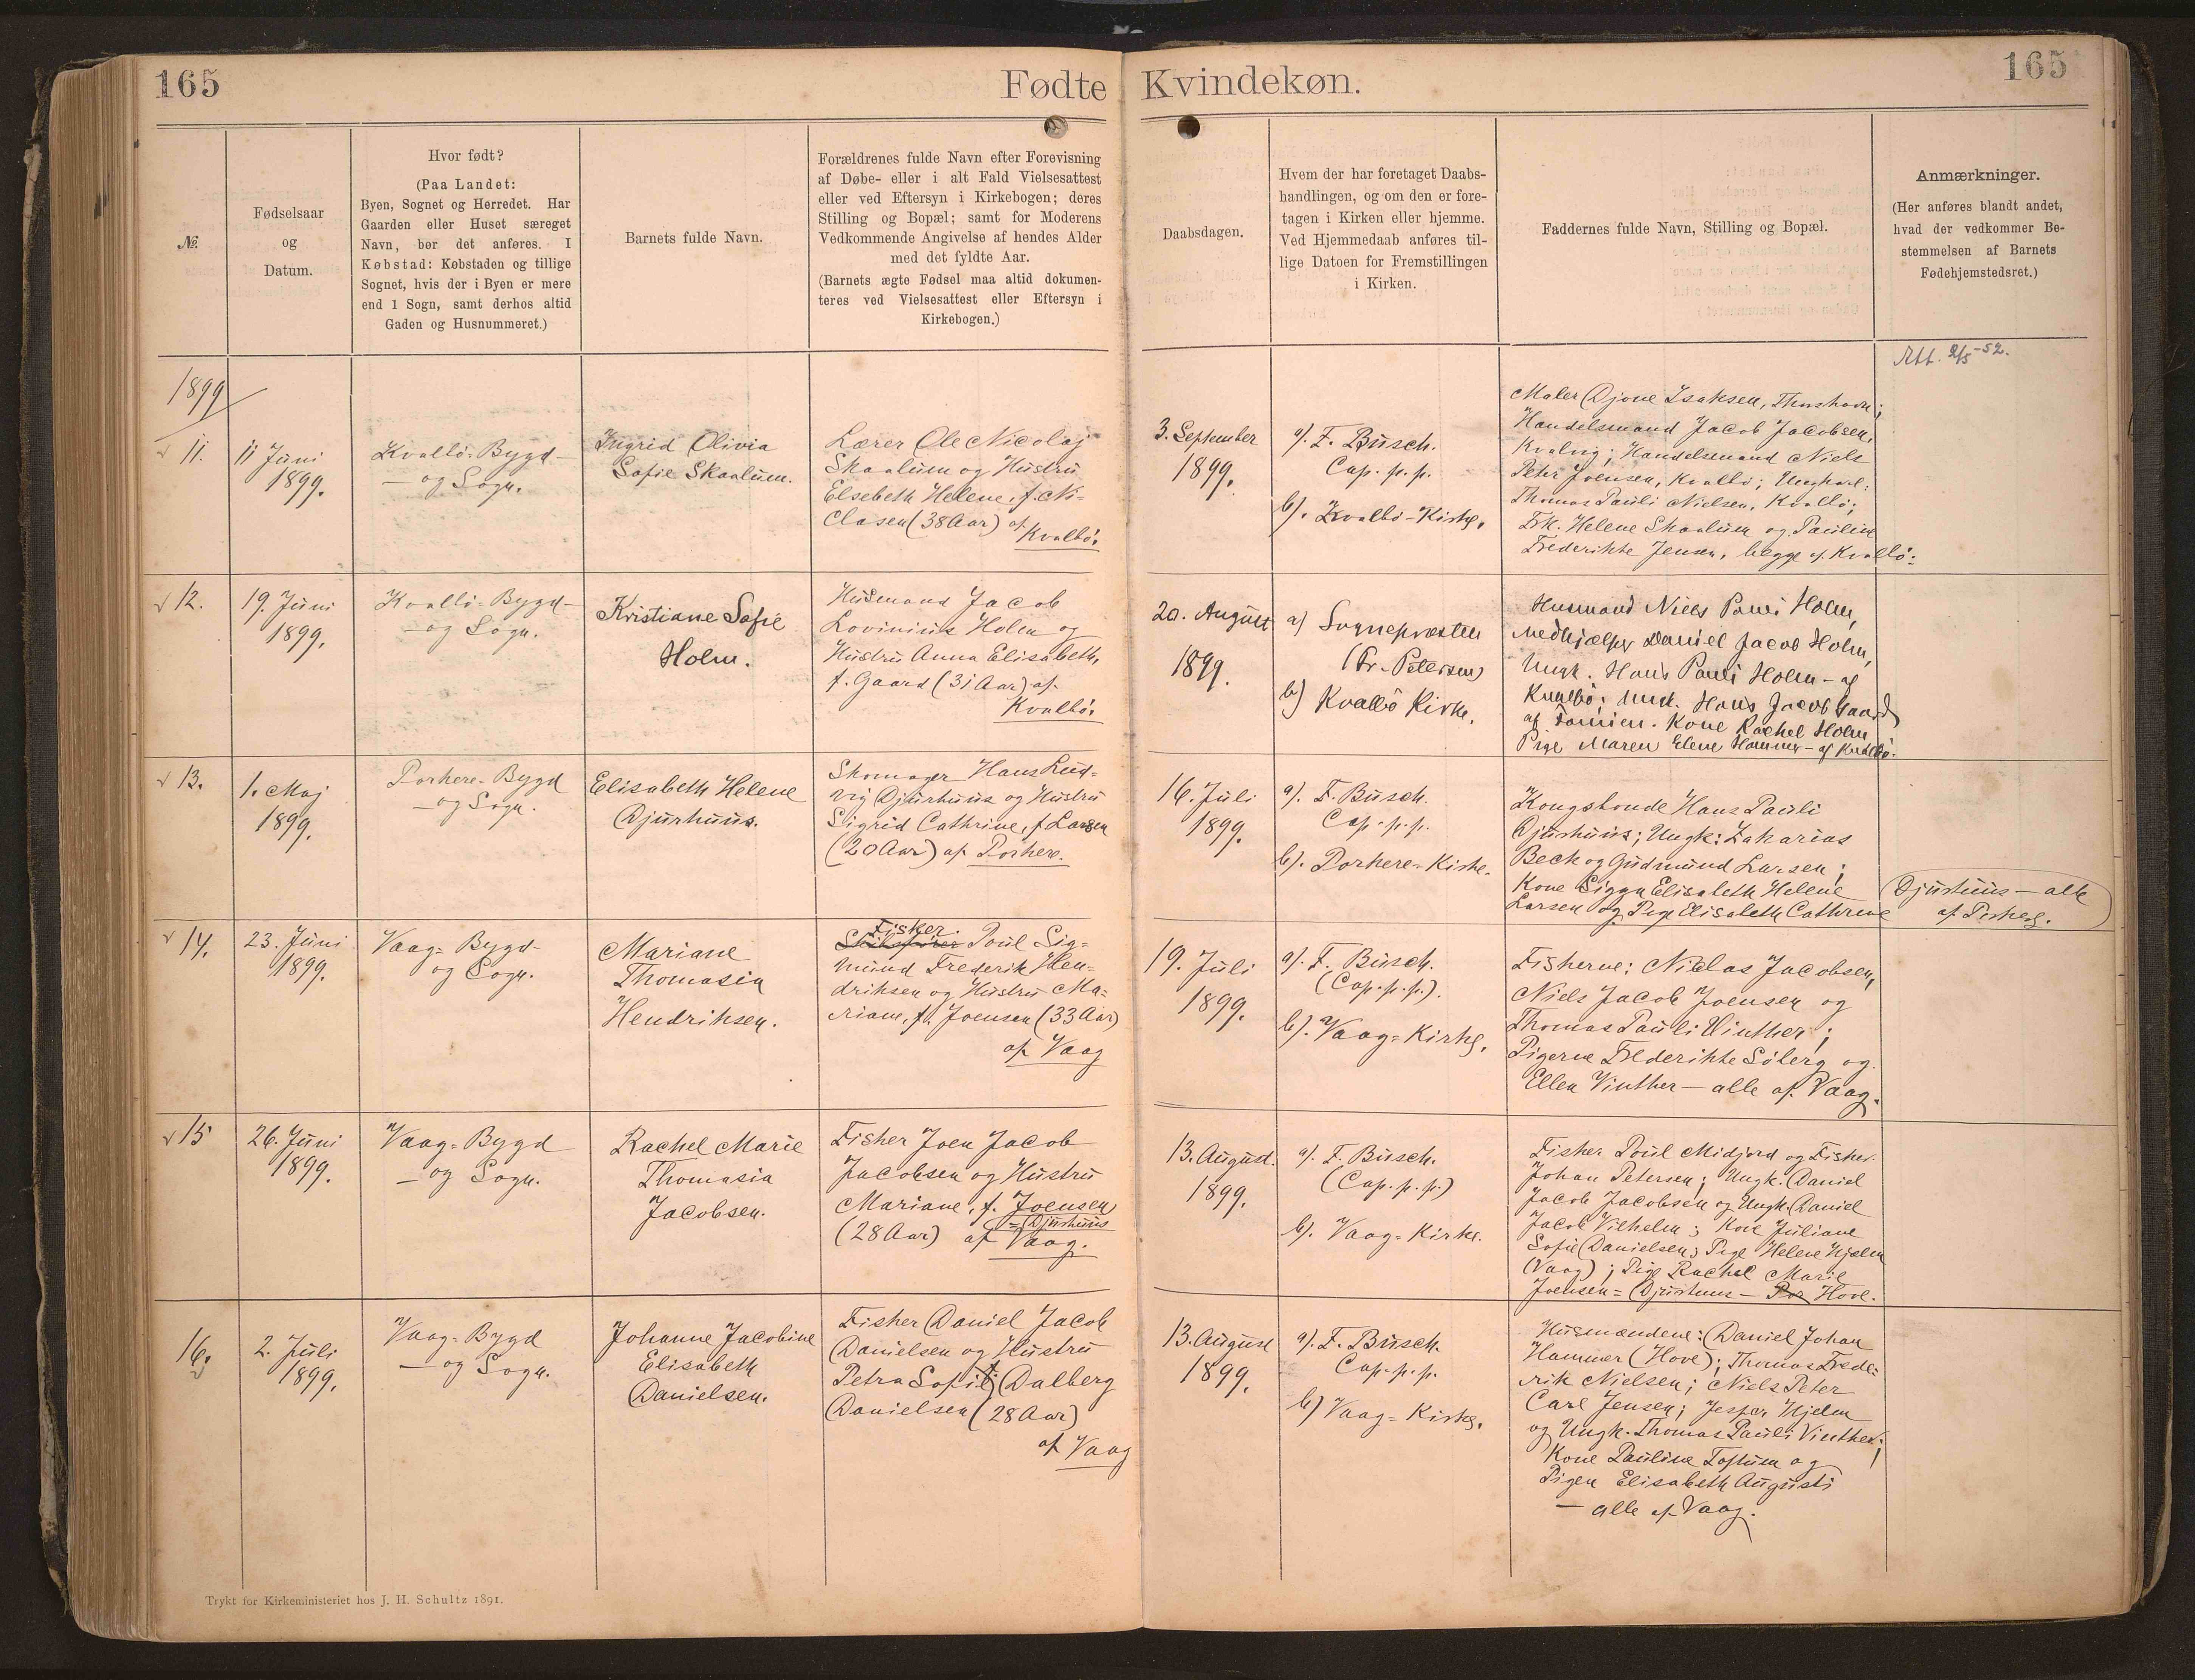 165
Fødte
Kvindekøn.
165
№.
Fødselsaar
og
Datum.
Hvor født?
(Paa Landet:
Byen, Sognet og Herredet. Har
Gaarden eller Huset særeget
Navn, bør det anføres. I
Købstad: Købstaden og tillige
Sognet, hvis der i Byen er mere
end 1 Sogn, samt derhos altid
Gaden og Husnummeret.)
Barnets fulde Navn.
Forældrenes fulde Navn efter Forevisning
af Døbe- eller i alt Fald Vielsesattest
eller ved Eftersyn i Kirkebogen; deres
Stilling og Bopæl; samt for Moderens
Vedkommende Angivelse af hendes Alder
med det fyldte Aar.
(Barnets ægte Fødsel maa altid dokumen-
teres ved Vielsesattest eller Eftersyn i
Kirkebogen.)
Daabsdagen.
Hvem der har foretaget Daabs-
handlingen, og om den er fore-
tagen i Kirken eller hjemme.
Ved Hjemmedaab anføres til-
lige Datoen for Fremstillingen
i Kirken.
Faddernes fulde Navn, Stilling og Bopæl.
Anmærkninger.
(Her anføres blandt andet,
hvad der vedkommer Be-
stemmelsen af Barnets
Fødehjemstedsret.)
1899
11.
11 Juni
1899.
Kvalbö-Bygd-
- og Sogn.
Ingrid Olivia
Sofie Skaalum.
Lærer Ole Nicolaj
Skaalum og Hustru
Elsebeth Helene, f. Ni-
Clasen (38 Aar) af
Kvalbö.
3. September
1899.
a). F. Busch.
Cap. p. p.
b). Kvalbö-Kirke.
Maler Djone Isaksen, Thorshavn;
Handelsmand Jacob Jacobsen,
Kvalvig; Handelsmand Niels
Peter Joensen, Kvalbö; Ungkarl:
Thomas Pauli Nielsen, Kvalbö;
Frk. Helene Skaalum og Pauline
Frederikke Jensen, begge af Kvalbö.
Att. 2/5-52.
12.
19. Juni
1899.
Kvalbö-Bygd-
- og Sogn.
Kristiane Sofie
Holm.
Husmand Jacob
Lovinius Holm og
Hustru Anna Elisabeth,
f. Gaard (31 Aar) af
Kvalbö.
20. August
1899.
a) Sognepræsten
(Fr. Petersen)
b) Kvalbö Kirke.
Husmand Niels Pauli Holm,
Medhjælper Daniel Jacob Holm,
Ungk. Hans Pauli Holm - af
Kvalbö; Ungk. Hans Jacob Gaard
af Famien. Kone Rachel Holm
Pige Maren Elene Hammer - af Kvalbö.
13.
1. Maj
1899.
Porkere-Bygd
- og Sogn.
Elisabeth Helene
Djurhuus.
Skomager Hans Lud-
vig Djurhuus og Hustru
Sigrid Cathrine, f. Larsen
(20 Aar) af Porkere.
16. Juli
1899.
a). F. Busch.
Cap. p. p.
b). Porkere-Kirke.
Kongsbonde Hans Pauli
Djurhuus; Ungk: Zakarias
Beck og Gudmund Larsen;
Kone Sigga Elisabeth Helene
Larsen og Pige Elisabeth Cathrine
Djurhuus - alle
af Porkere.
14.
23. Juni
1899.
Vaag-Bygd-
og Sogn.
Mariane
Thomasia
Hendriksen.
Fisker.
Poul Sig-
mund Frederik Hen-
driksen og Hustru Ma-
riane, f. Joensen (33 Aar)
af Vaag
19. Juli
1899.
a). F. Busch.
(Cap. p. p.).
b). Vaag-Kirke.
Fiskerne: Niclas Jacobsen,
Niels Jacob Joensen og
Thomas Pauli Vinther;
Pigerne Frederikke Söberg og
Ellen Vinther - alle af Vaag.
15
26. Juni
1899.
Vaag-Bygd
- og Sogn.
Rachel Marie
Thomasia
Jacobsen.
Fisker Joen Jacob
Jacobsen og Hustru
Mariane, f. Joensen
= Djurhuus
(28 Aar) af Vaag.
13. August.
1899.
a). F. Busch.
(Cap. p. p.)
b). Vaag-Kirke.
Fisker Poul Midjord og Fisker
Johan Petersen; Ungk. Daniel
Jacob Jacobsen og Ungk. Daniel
Jacob Vilhelm; Kone Juliane
Sofie Danielsen; Pige Helene Hjelm
(Vaag); Pige Rachel Marie
Joensen = Djurhuus - Por Hove.
16.
2. Juli
1899.
Vaag-Bygd
- og Sogn.
Johanne Jacobine
Elisabeth
Danielsen.
Fisker Daniel Jacob
Danielsen og Hustru
Petra Sofie f. Dalberg
Danielsen (28 Aar)
af Vaag
13. August
1899.
a). F. Busch.
Cap. p. p.
b) Vaag-Kirke.
Husmændene: Daniel Johan
Hammer (Hove); Thomas Frede-
rik Nielsen; Niels Peter
Carl Jensen; Jesper Hjelm
og Ungk. Thomas Pauli Vinther;
Kone Pauline Toftum og
Pigen Elisabeth Augusti
- alle af Vaag.
Trykt for Kirkeministeriet hos J. H. Schultz 1891.